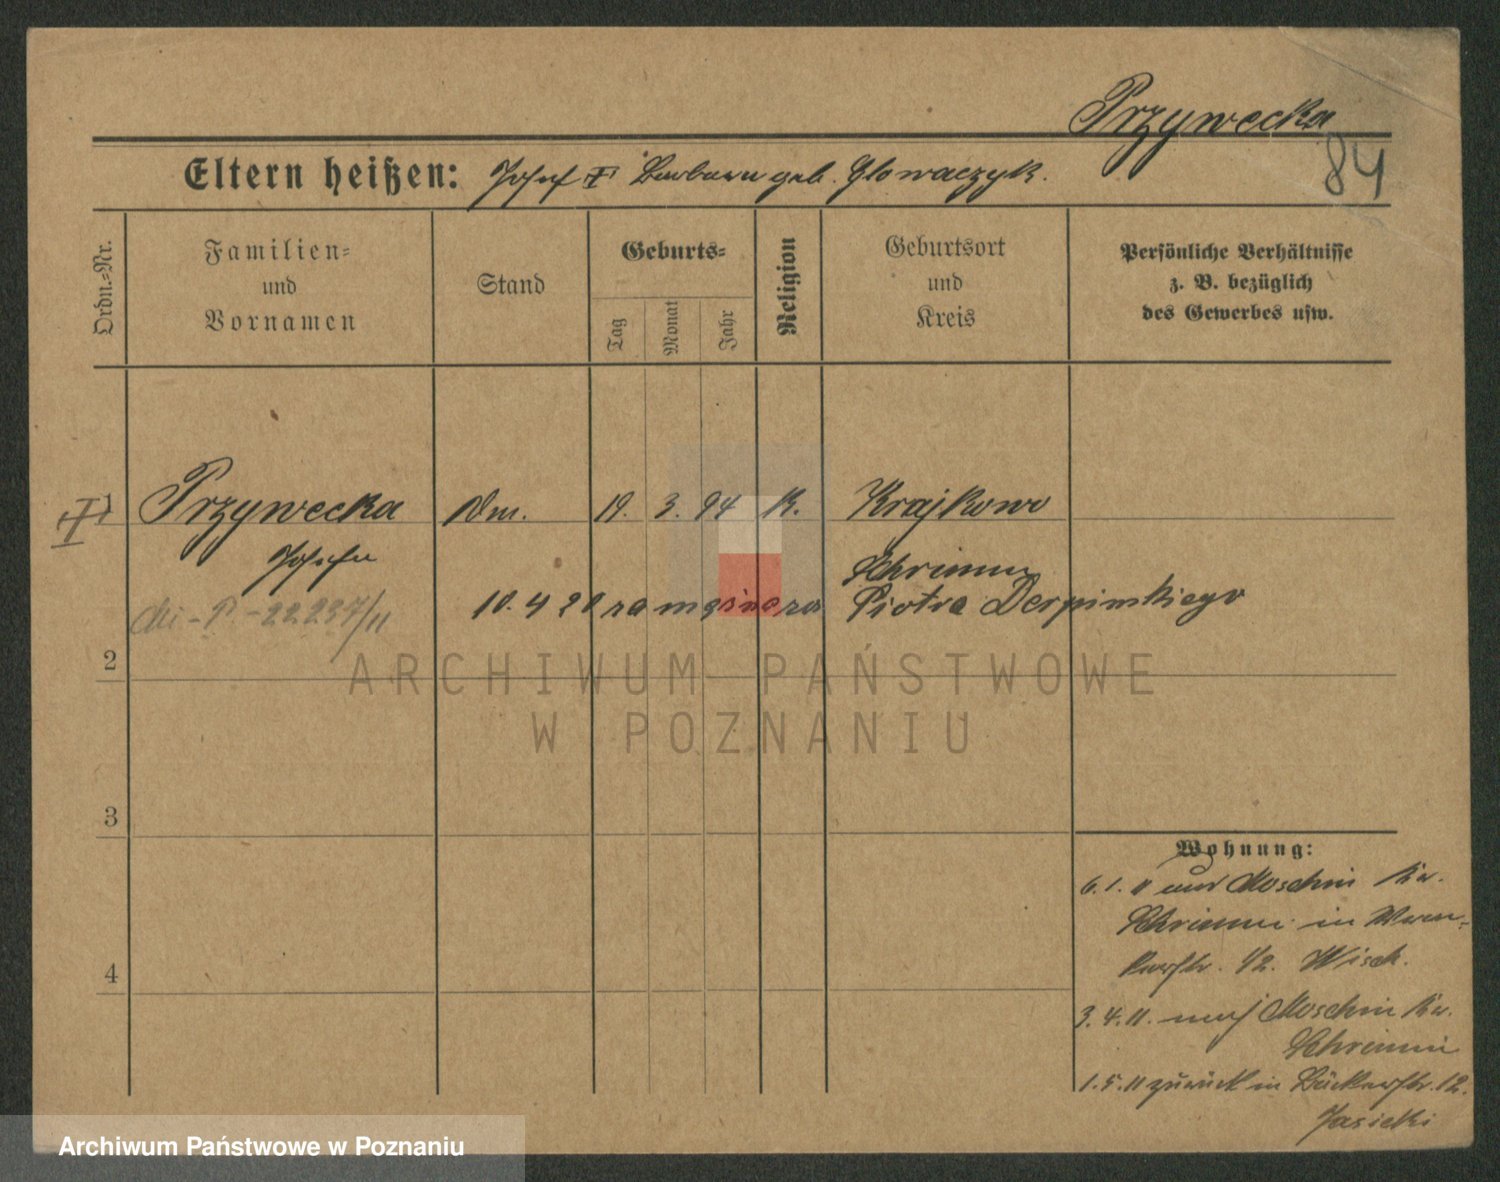 Przywecka
84
Eltern heißen: Josef Barbara geb. Glowaczyk.
Ordn.-Nr.
Familien-
und
Vornamen
Stand
Geburts-
Tag
Monat
Jahr
Religion
Geburtsort
und
Kreis
Persönliche Verhältnisse
z. B. bezüglich
des Gewerbes usw.
1
Przywecka
Josefa
19. 3. 94 k. Krajkowo
Schrimm
10. 4 20 zamężna za Piotra
2
3
4
Wohnung:
6. 1. 11 aus Moschin Kr.
Schrimm in
1/2.
3. 4. 11. nach Moschin Kr.
Schrimm
1. 5. 11 zurück in Bäckerstr. 12.
Jasicki
ARCHIWUM PAŃSTWOWE
W POZNANIU
Archiwum Państwowe w Poznaniu